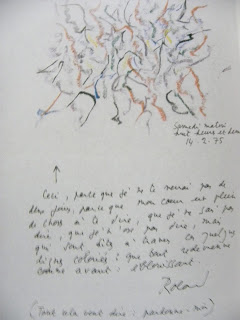 Samedi matin
huit heures et dem
14-2-75
Ceci, parce que je ne te verrai pas de
deux jours, parce que mon cœur est plein
de choses à te dire, que je ne sais pas
dire, que je n'ose pas dire, mais
qui sont, dites à travers ces quelques
lignes coloriées : que tout redevienne
comme avant : éblouissant.
Roland
(Tout cela veut dire : pardonne-moi)